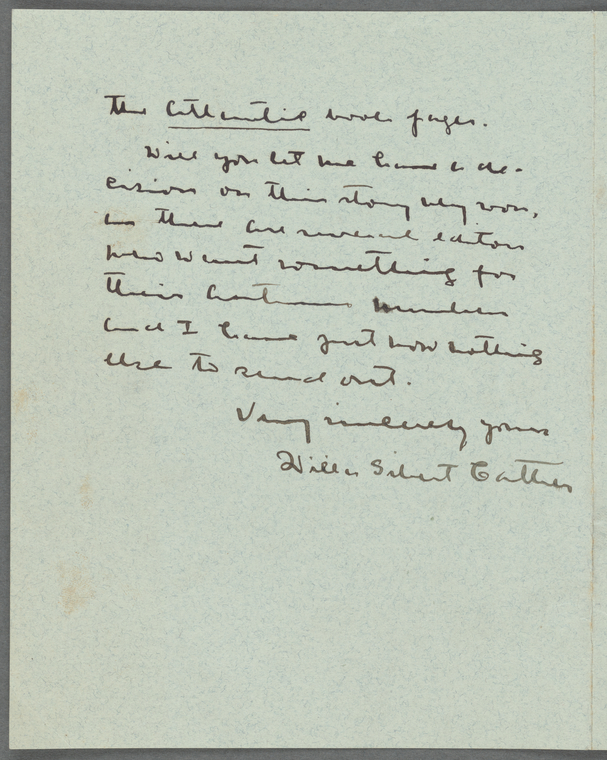 the Atlantic book pages.
Will you let me have a de-
cision on this story very soon,
as there are several editors
who want something for
their autumn numbers
and I have just now nothing
else to send out.
Very sincerely yours
Willa Sibert Cather